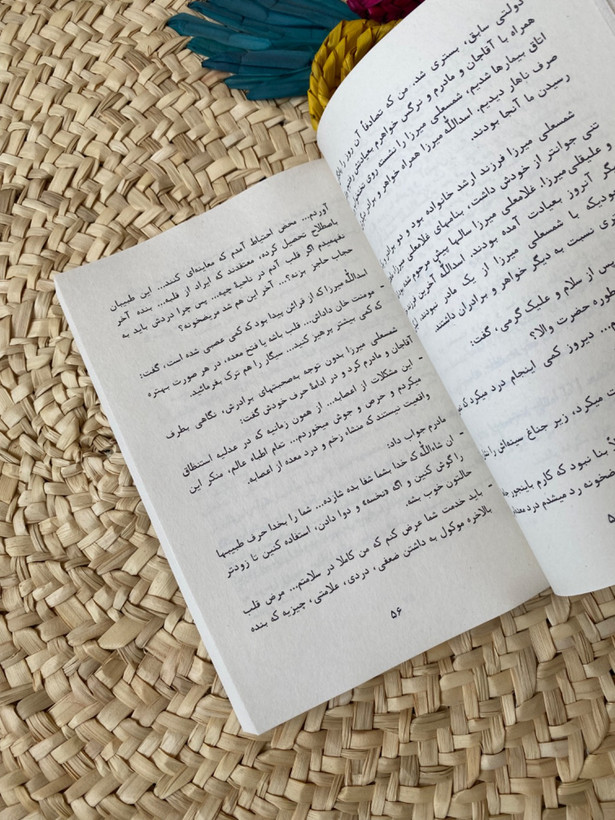 دولتی سابق، بستری شد. من که تصادفاً آن روز
همراه با آقاجان و مادرم و نرگس خواهرم بعیادتش
اتاق بیمارها شدیم، شمسعلی میرزا را نشسته روی
صرف ناهار دیدیم. اسدالله میرزا همراه خواهر و
رسیدن ما آنجا بودند.
شمسعلی میرزا فرزند ارشد خانواده بود و دو
تنی جوانتر از خودش داشت، بنامهای غلامعلی میرزا
و علیقلی میرزا. غلامعلی میرزا سالها پیش مرحوم
آنروز بعیادت آمده بودند. اسدالله آخرین
با شمسعلی میرزا از یک مادر بودند
نسبت به دیگر خواهر و برادران داشتند
پس از سلام و علیک گرمی، گفت:
حضرت والا؟
دیروز کمی اینجام درد میکرد
میکرد، زیر جناغ سینه‌اش
بنا نبود که کارم باینجور
رد میشدم درد
آوردم... محض احتیاط آمدم که معاینه‌ای کنند... این طبیبان
باصطلاح تحصیل کرده، معتقدند که ایراد از قلبه... بنده آخر
نفهمیدم اگر قلب آدم در ناحیهٔ چپه... پس چرا دردش باید به
حجاب حاجز بزنه؟... آخر این هم شد مریضخونه؟
اسدالله میرزا که از قرائن پیدا بود که کمی عصبی شده است، گفت:
- مومنت خان داداش... قلب باشه یا فتح معده، در هر صورت بهتره
که کمی بیشتر پرهیز کنید... سیگار را هم ترک بفرمائید.
شمسعلی میرزا بدون توجه به‌صحبتهای برادرش، نگاهی بطرف
آقاجان و مادرم کرد و در ادامهٔ حرف خودش گفت:
- این مشکلات از اعصابه... از همون زمانیه که در عدلیه استنطاق
میکردم و حرص و جوش میخوردم... تمام اطباء عالم، منکر این
واقعیت نیستند که منشاء زخم و درد معده از اعصابه.
مادرم جواب داد:
- ان شاءالله که خدا بشما شفا بده شازده... شما را بخدا حرف طبیبها
را گوش کنین و اگه «نخسه» و دوا دادن، استفاده کنین تا زودتر
حالتون خوب بشه.
باید خدمت شما عرض کنم که من کاملا در سلامتم... مرض قلب
بالاخره موکول به داشتن ضعفی، دردی، علامتی، چیزیه که بنده
۵۶